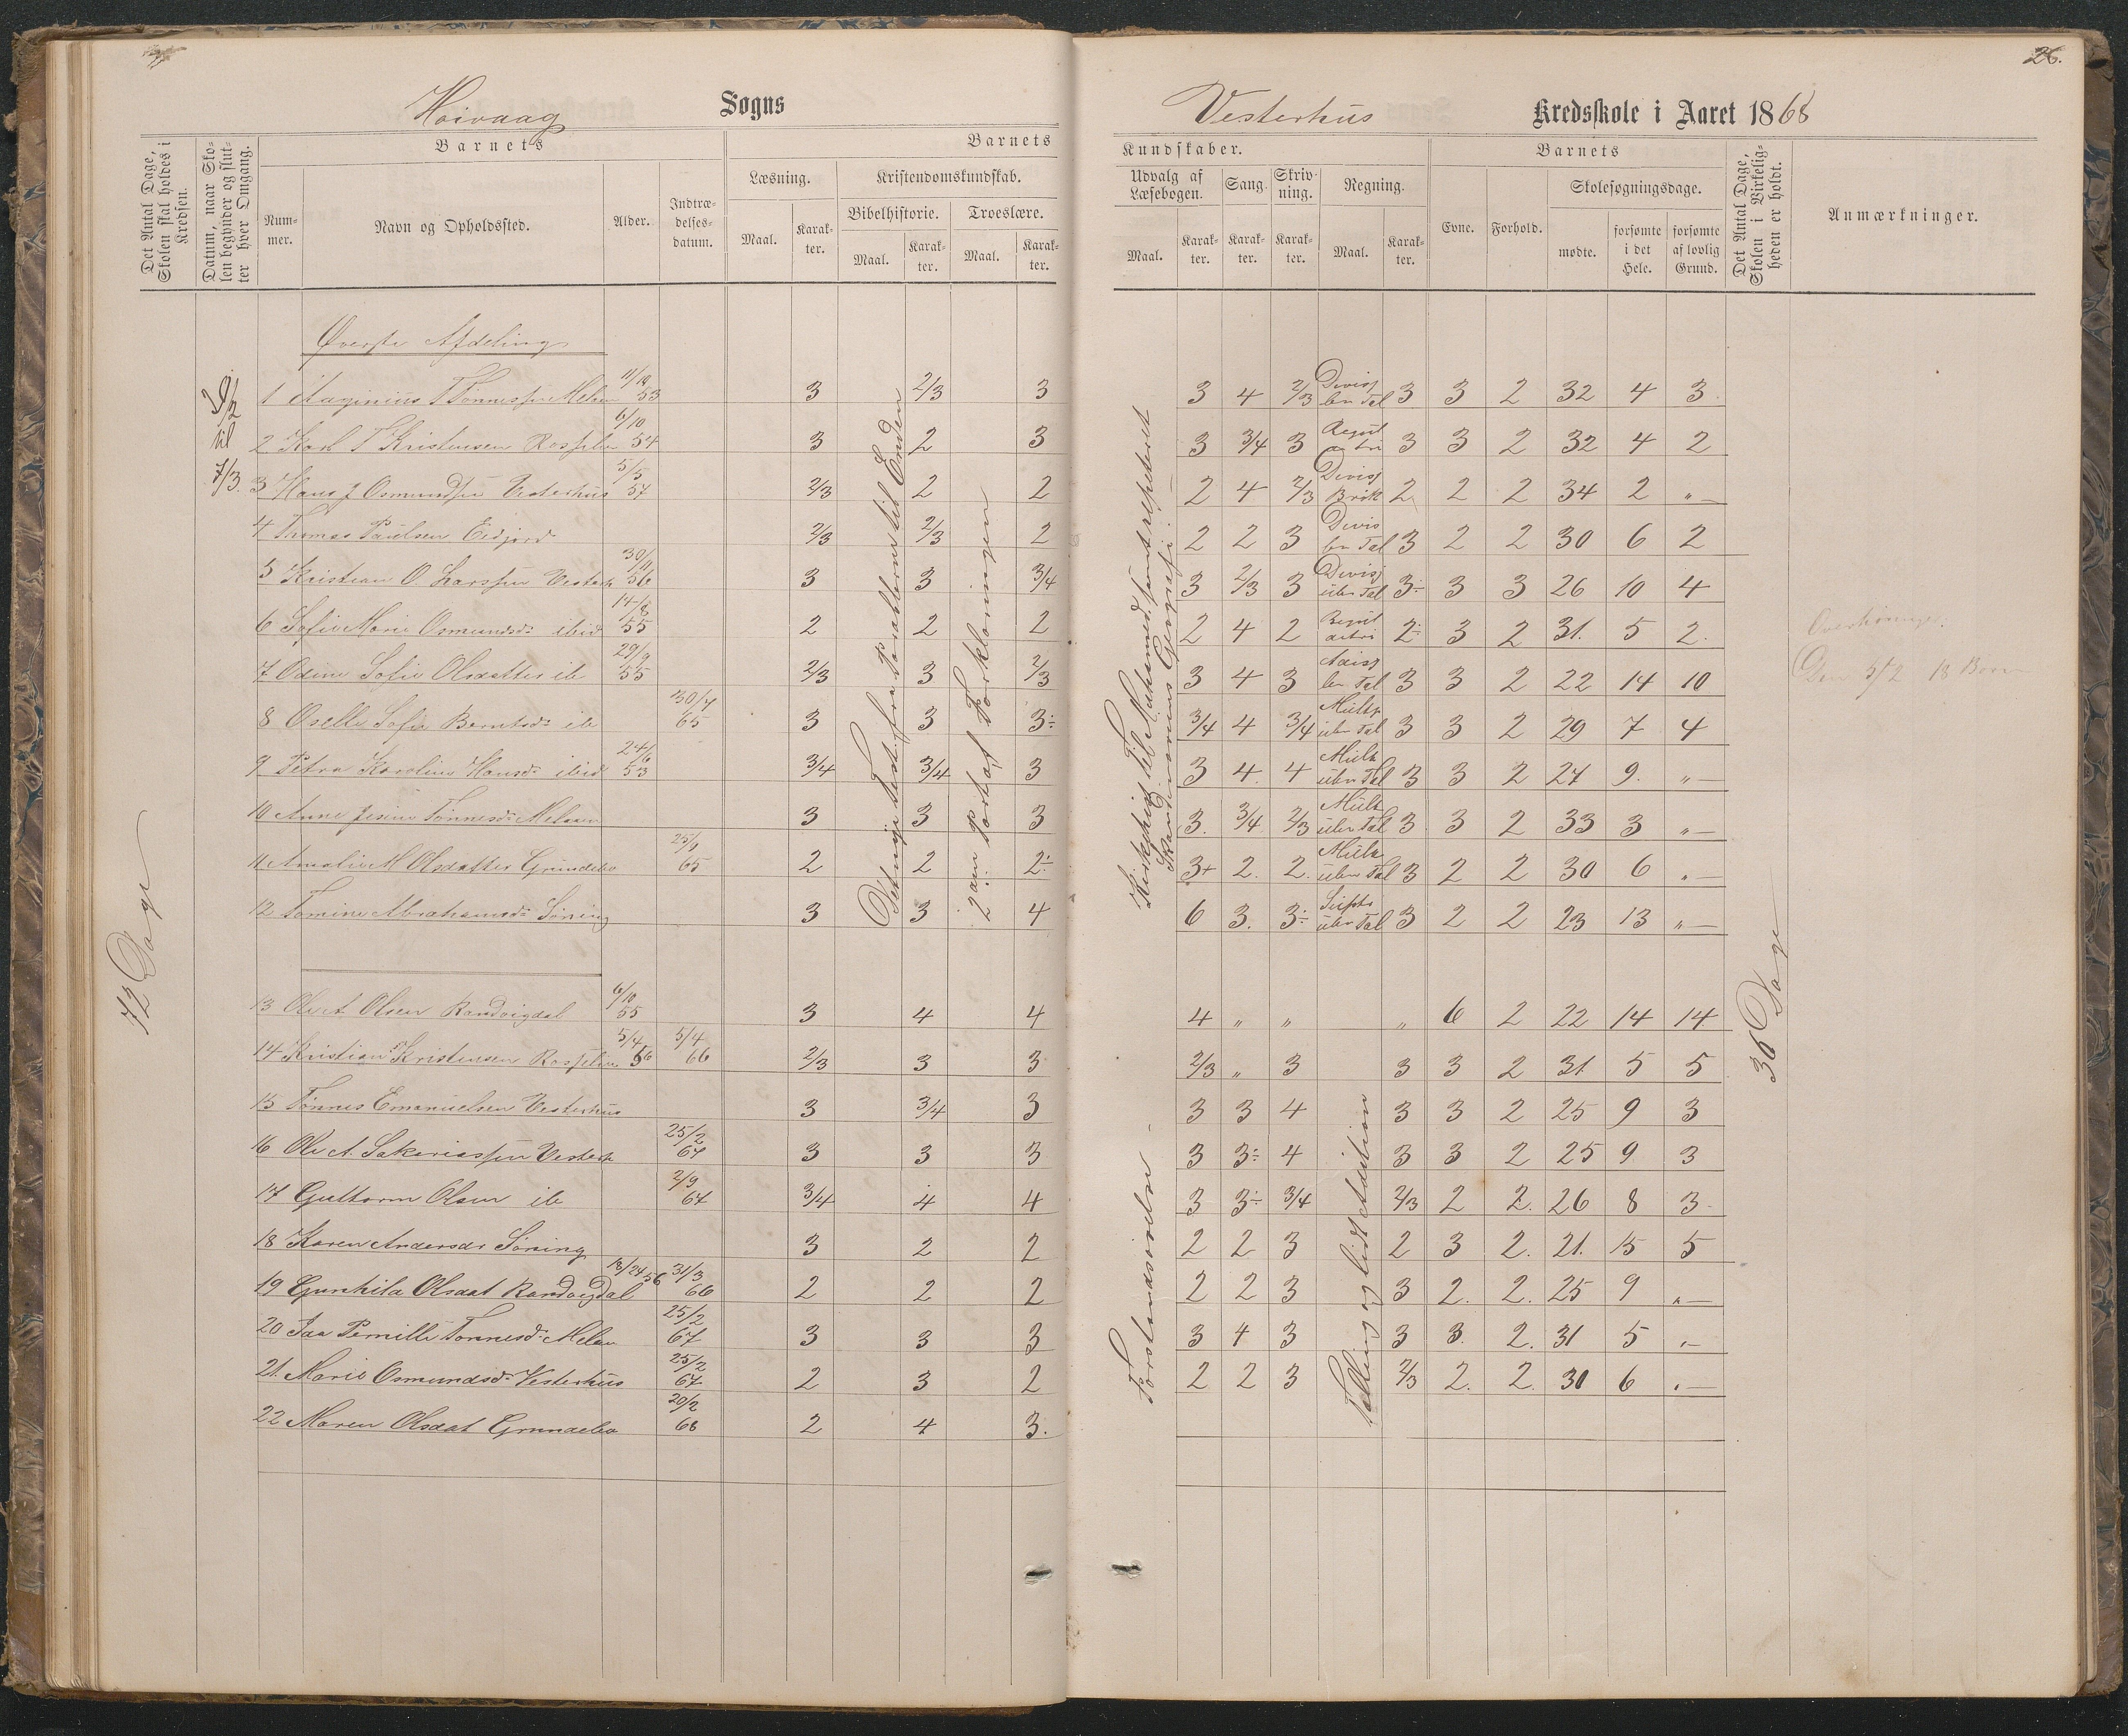 26.
Høivaag Sogns
Vesterhus Kredsskole i Aaret 1868
Det Antal Dage, Skolen skal holdes i Kredsen.
Datum, naar Skolen begynder og slutter hver Omgang.
Barnets
Nummer.
Navn og Opholdssted.
Alder.
Indtrædelsesdatum.
Barnets
Læsning.
Maal.
Karakter.
Kristendomskundskab.
Bibelhistorie.
Maal.
Karakter.
Troeslære.
Maal.
Karakter.
Kundskaber.
Udvalg af Læsebogen.
Maal.
Karakter.
Sang.
Karakter.
Skrivning.
Karakter.
Regning.
Maal.
Karakter.
Barnets
Evne.
Forhold.
Skolesøgningsdage.
mødte.
forsømte i det Hele.
forsømte af lovlig Grund.
Det Antal Dage, Skolen i Virkeligheden er holdt.
Anmærkninger.
72 Dage
til
7/3.
Øverste Afdeling
1 T Tønnessen 11/10 53 3 2/3 3 3 4 2/3 3 3 2 32 4 3
2 Karl T Kristensen 6/10 54 3 2 3 3 3/4 3 3 3 2 32 4 2
3 Hans J Osmundsen Vesterhus 5/5 57 2/3 2 2 2 4 2/3 2 2 2 34 2 "
4 Thomas Paulsen Eidjord 2/3 2/3 2 2 2 3 3 2 2 30 6 2
5 Kristian O. Larssen Vesterh 30/11 56 3 3 3/4 3 2/3 3 3÷ 3 3 26 10 4
6 Sofie Marie Osmundsd: ibid 14/8 55 2 2 2 2 4 2 2÷ 3 2 31. 5 2.
7 Odine Sofie Olsdatter ib 29/9 55 2/3 3 2/3 3 4 3 3 3 2 22 14 10
8 Sofie Berntsd: ib 30/4 65 3 3 3÷ 3/4 4 3/4 3 3 2 29 7 4
9 Petra Karoline Hansd: ibid 24/6 53 3/4 3/4 3 3 4. 4 3 3 2 27 9. "
10 Anne Jesine Tønnesd: 3 3 3 3. 3/4 2/3 3 3 2 33 3 "
11 Amalie M Olsdatter Grundebo 65 2 2 2÷ 3+ 2. 2. 3 2 2 30 6 "
12 Tomine Abrahamsd: 3 3 4 6 3. 3÷ 3 2 2 23 13 "
13 Olsen Randvigdal 6/10 55 3 4 4 4 " " " 6 2 22 14 14
14 Kristian Kristensen 5/4 56 5/4 66 2/3 3 3 2/3 " 3 3 3 2 31. 5 5
15 Tønnes Emanuelsen Vesterhus 3 3/4 3 3 3 4 3 3 2 25 9 3
16 Ole A. Sakariassen Vesterh 25/2 67 3 3 3 3 3÷ 4 3 3 2 25 9 3
17 Guttorm Olsen ib 2/9 67 3/4 4 4 3 3÷ 3/4 2/3 2 2. 26 8 3
18 Karen Andersdr 3 2 2 2 2 3 2 3 2. 21. 15 5
19 Gunhild Olsdat Randvigdal 31/3 66 2 2 2 2 2 3 3 2. 2. 25 9 "
20 Pernille Tønnesd: 25/2 67 3 3 3 3 4 3 3 3. 2. 31 5 "
21. Marie Osmundsd: Vesterhus 25/2 67 2 3 2 2 2 3 2/3 2. 2. 30 6 "
22 Maren Olsdat Grundebo 20/2 68 2 4 3.
til Enden
2den Part af Forklaringen
Forstandsøvelse
Tælling og lidt Addition
36 Dage
Den 5/2 18 Børn